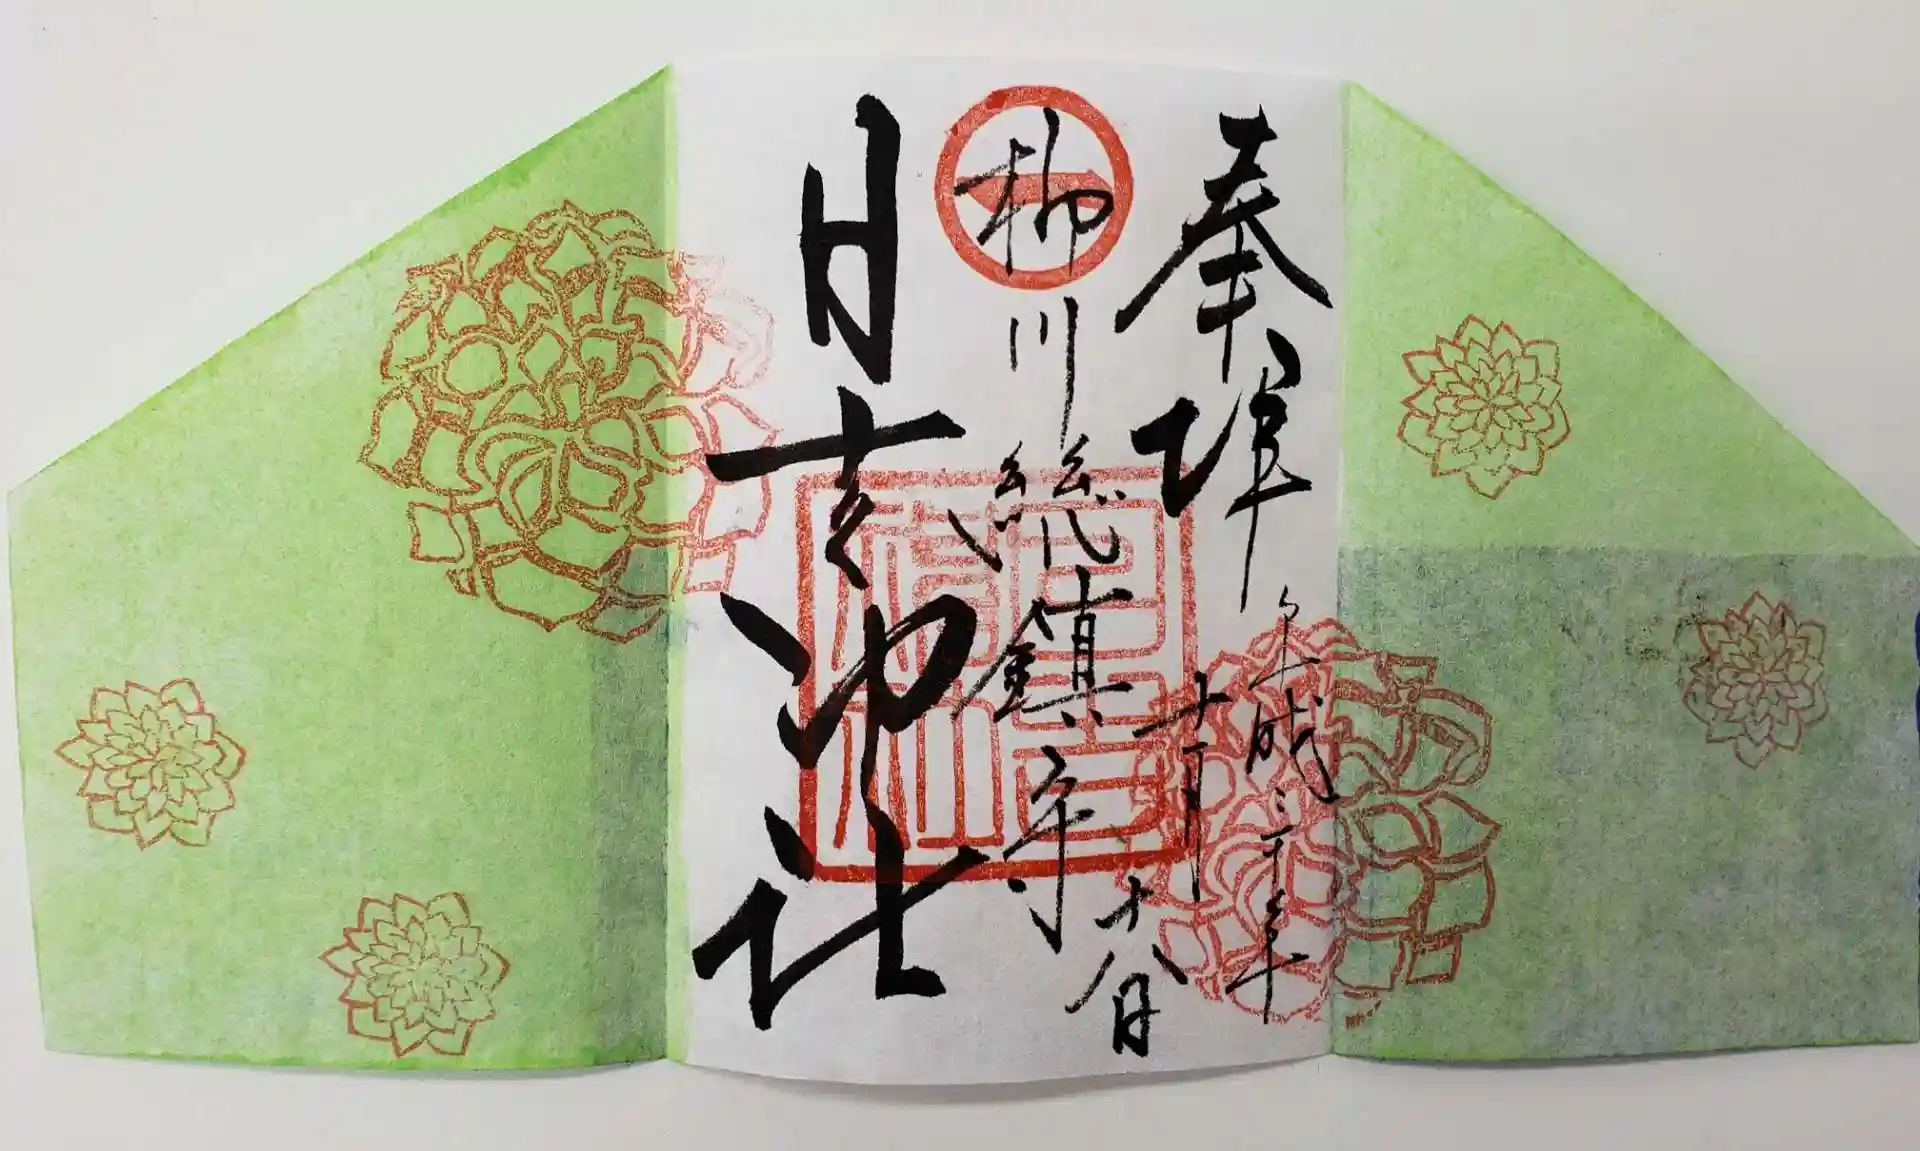 奉拝
平成三十年
十月
十八日
柳川総鎮守
日吉神社
日吉
神社